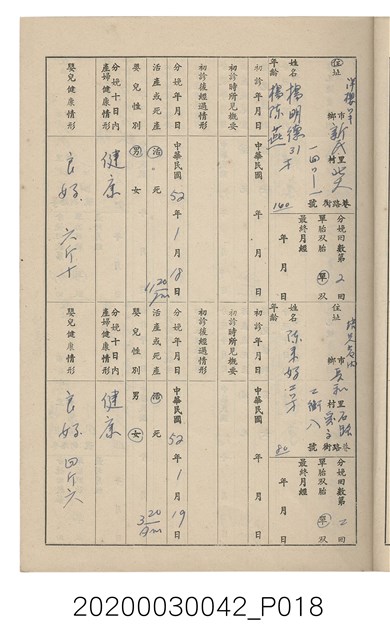 住址 鄉市 新民 村里 路街 巷號 140
分娩回數第 2 回
單胎双胎 單 双
最終月經 年 月 日
姓名 楊明德 31才
年齡 楊陳燕
初診 中華民國 年 月 日
初診時所見概要
初診後經過情形
分娩年月日 中華民國 52 年 1 月 18 日
活產或死產 活 死
嬰兒性別 男 女
分娩十日內產婦健康情形 健康
嬰兒健康情形 良好 六斤十
住址 鄉市 長和 村里 路街 巷號 80
分娩回數第 2 回
單胎双胎 單 双
最終月經 年 月 日
姓名
年齡 陳
初診 中華民國 年 月 日
初診時所見概要
初診後經過情形
分娩年月日 中華民國 52 年 1 月 19 日
活產或死產 活 死
嬰兒性別 男 女
分娩十日內產婦健康情形 健康
嬰兒健康情形 良好 四斤六
20200030042_P018